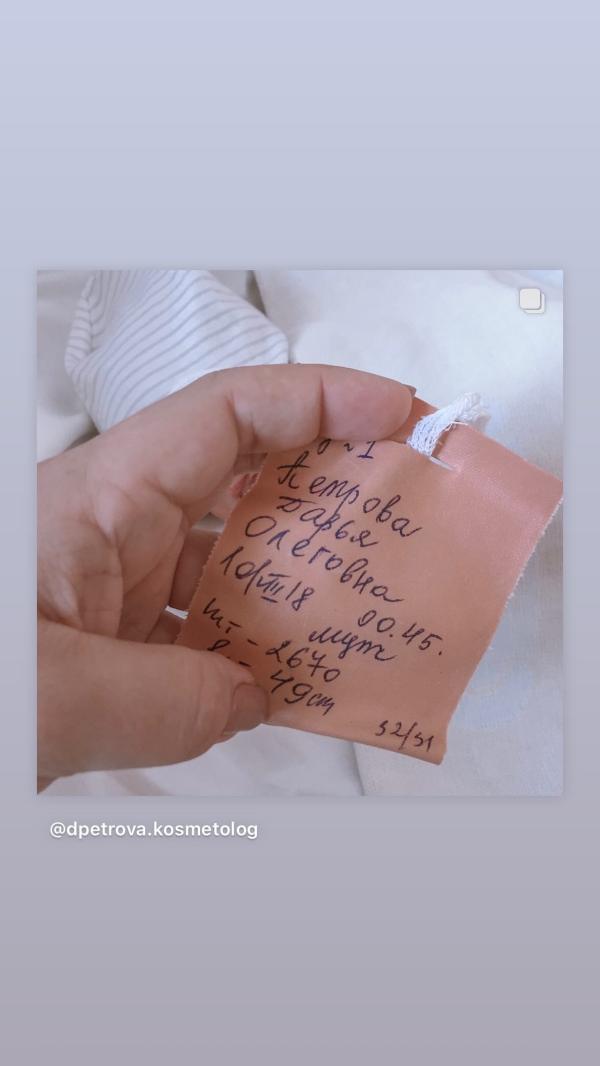 Петрова
Дарья
Олеговна
10/VIII 18 00.45.
муж
mт - 2670
49 cm
32/31
@dpetrova.kosmetolog